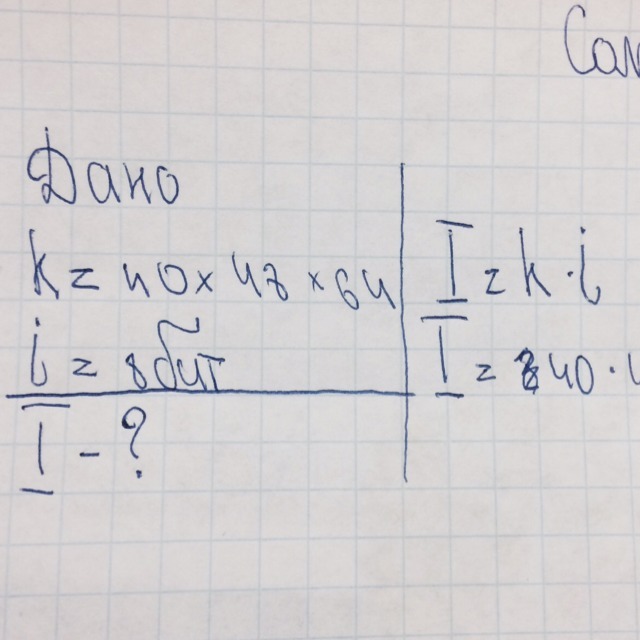 Дано
k = 40 × 48 × 64
i = 8 бит
I - ?
I = k · i
I = 40 ·